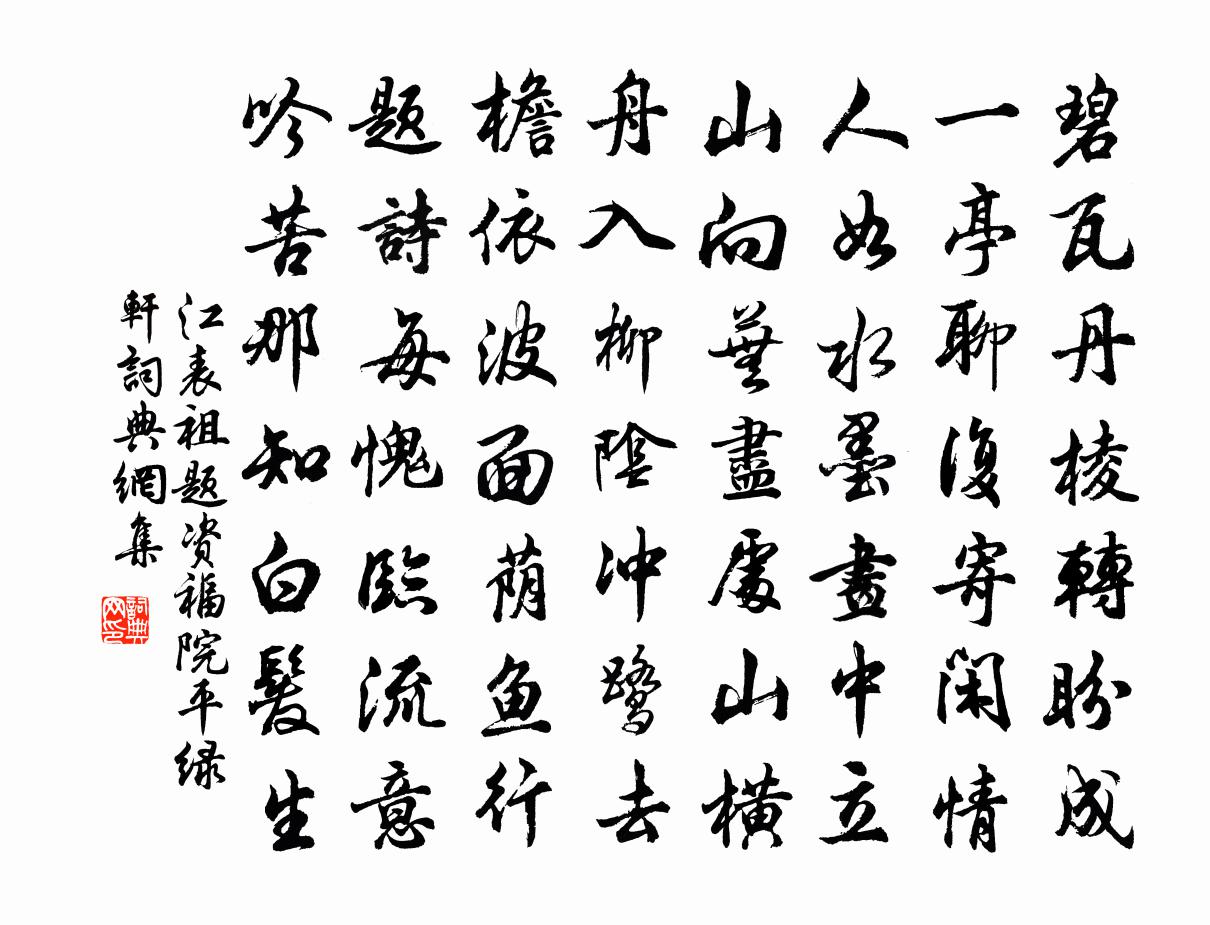 碧瓦丹棱轉盼成
一亭聊復寄闲情
人如水墨畫中立
山向蕪盡處山横
舟入柳陰冲鹭去
檐依波面荫鱼行
题詩每愧臨流意
吟苦那知白髮生
江表祖题资福院平绿
軒詞典網集
詞典
网印